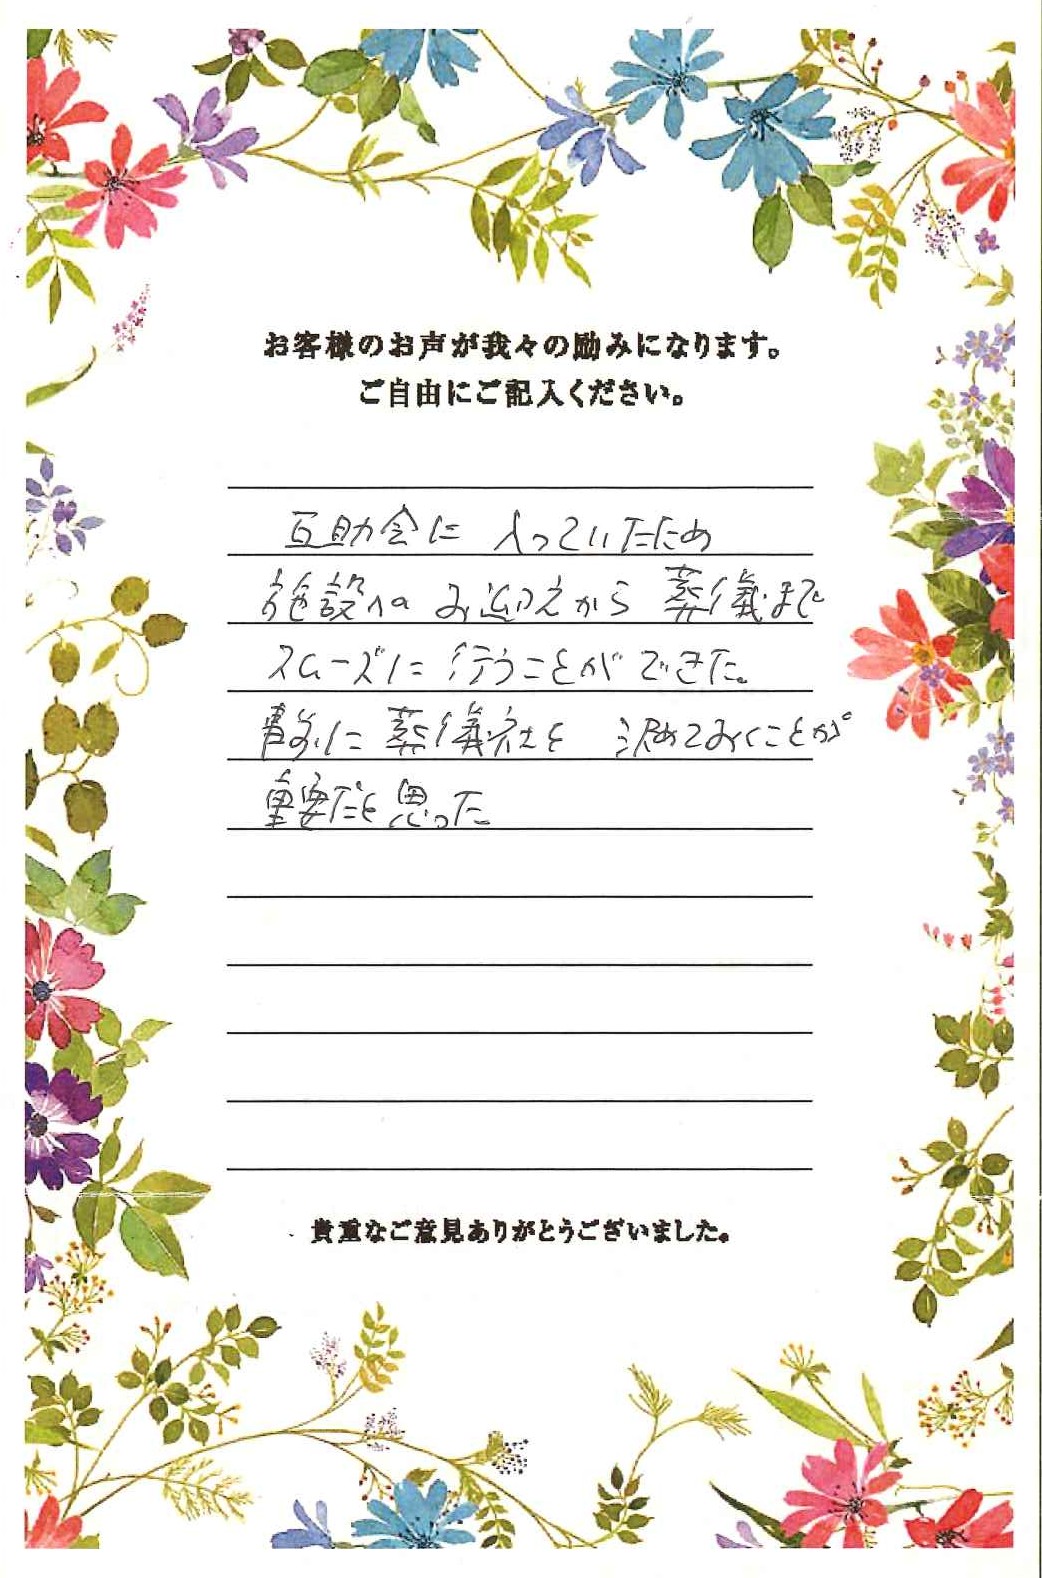 お客様のお声が我々の励みになります。
ご自由にご記入ください。
互助会に 入っていたため
施設への お迎えから 葬儀まで
スムーズに 行うことができた。
事前に 葬儀社を 決めておくことが
重要だと思った
貴重なご意見ありがとうございました。